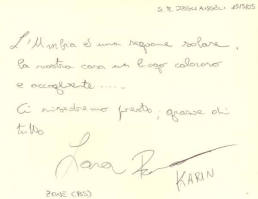 S. M. DEGLI ANGELI 15/5/05
L'Umbria è una regione solare,
la vostra casa un luogo caloroso
e accogliente.....
Ci rivedremo presto, grazie di
tutto
Lara
KARIN
ZONE (BS)